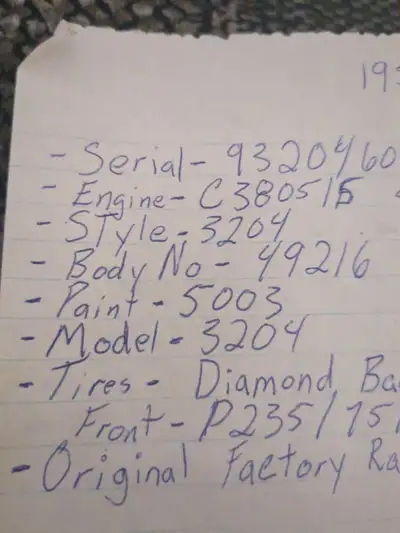 193
- Serial - 9320460
- Engine - C380515
- STyle - 3204
- Body No - 49216
- Paint - 5003
- Model - 3204
- Tires - Diamond Ba
Front - P235/75/
- Original Factory Ra